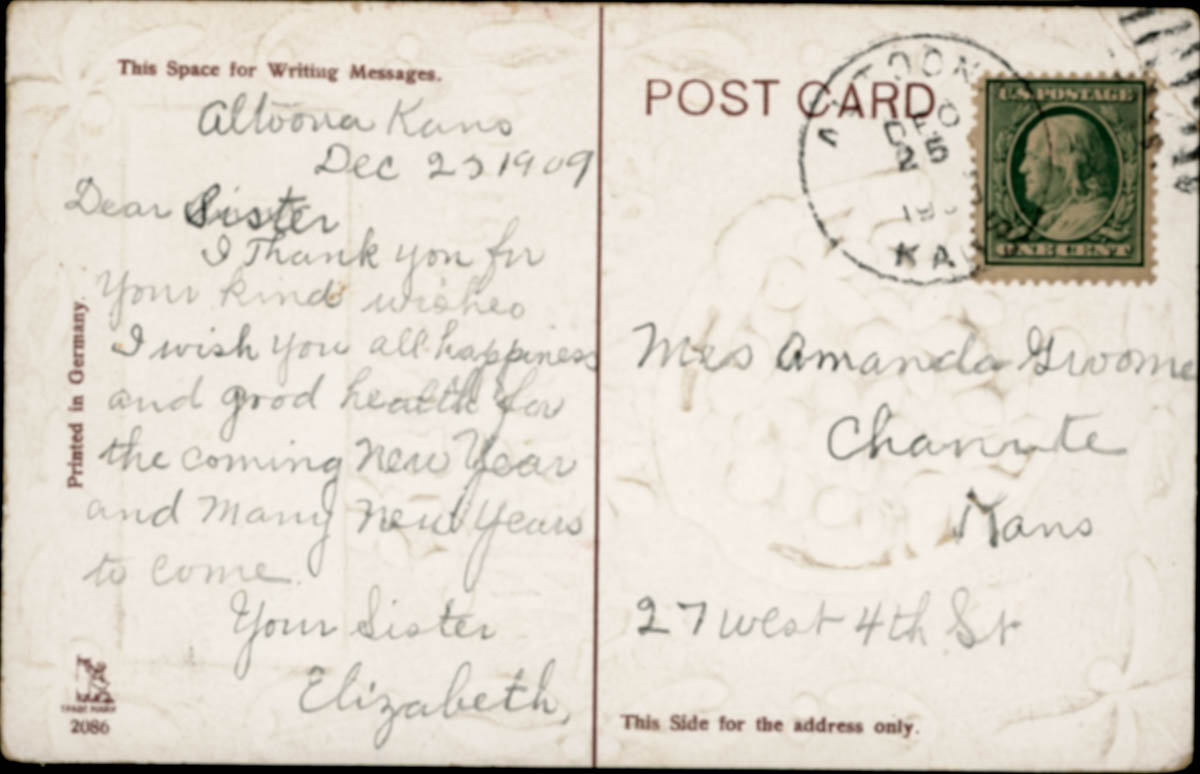 This Space for Writing Messages.
Altoona Kans
Dec 27 1909
Dear Sister
I Thank you for
Your kind wishes
I wish you all happiness
and good health for
the coming New Year
and Many New Years
to come.
Your Sister
Elizabeth,
Printed in Germany.
TRADE MARK
2086
POST CARD
DEC
25
KA
U.S. POSTAGE
ONE CENT
Mrs Amanda Groome
Chanute
Kans
27 West 4th St
This Side for the address only.